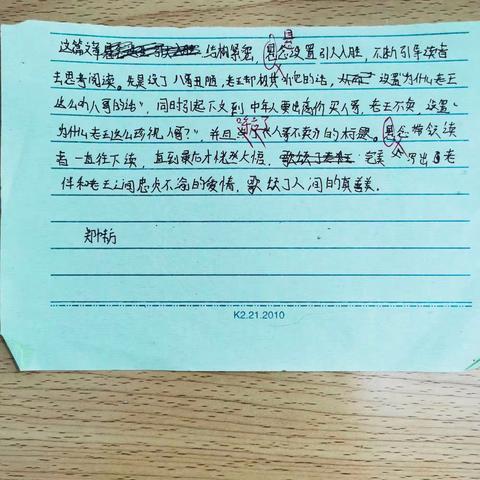 悬
这篇文章结构紧密，悬念设置引人入胜，不断引导读者
去思考阅读。先是说了八哥丑陋，老王却 它的话，设置"为什么老王
这么 八哥的话"，同时引起下文到中年人要出高价买八哥，老王不卖，设置"
为什么老王这么珍视八哥？"，并且 八哥不卖 的 悬念 读
者一直往下读，直到最后才恍然大悟，完美 写出了老
伴和老王之间忠贞不渝的爱情，歌颂了人间的真善美。
郑
K2.21.2010